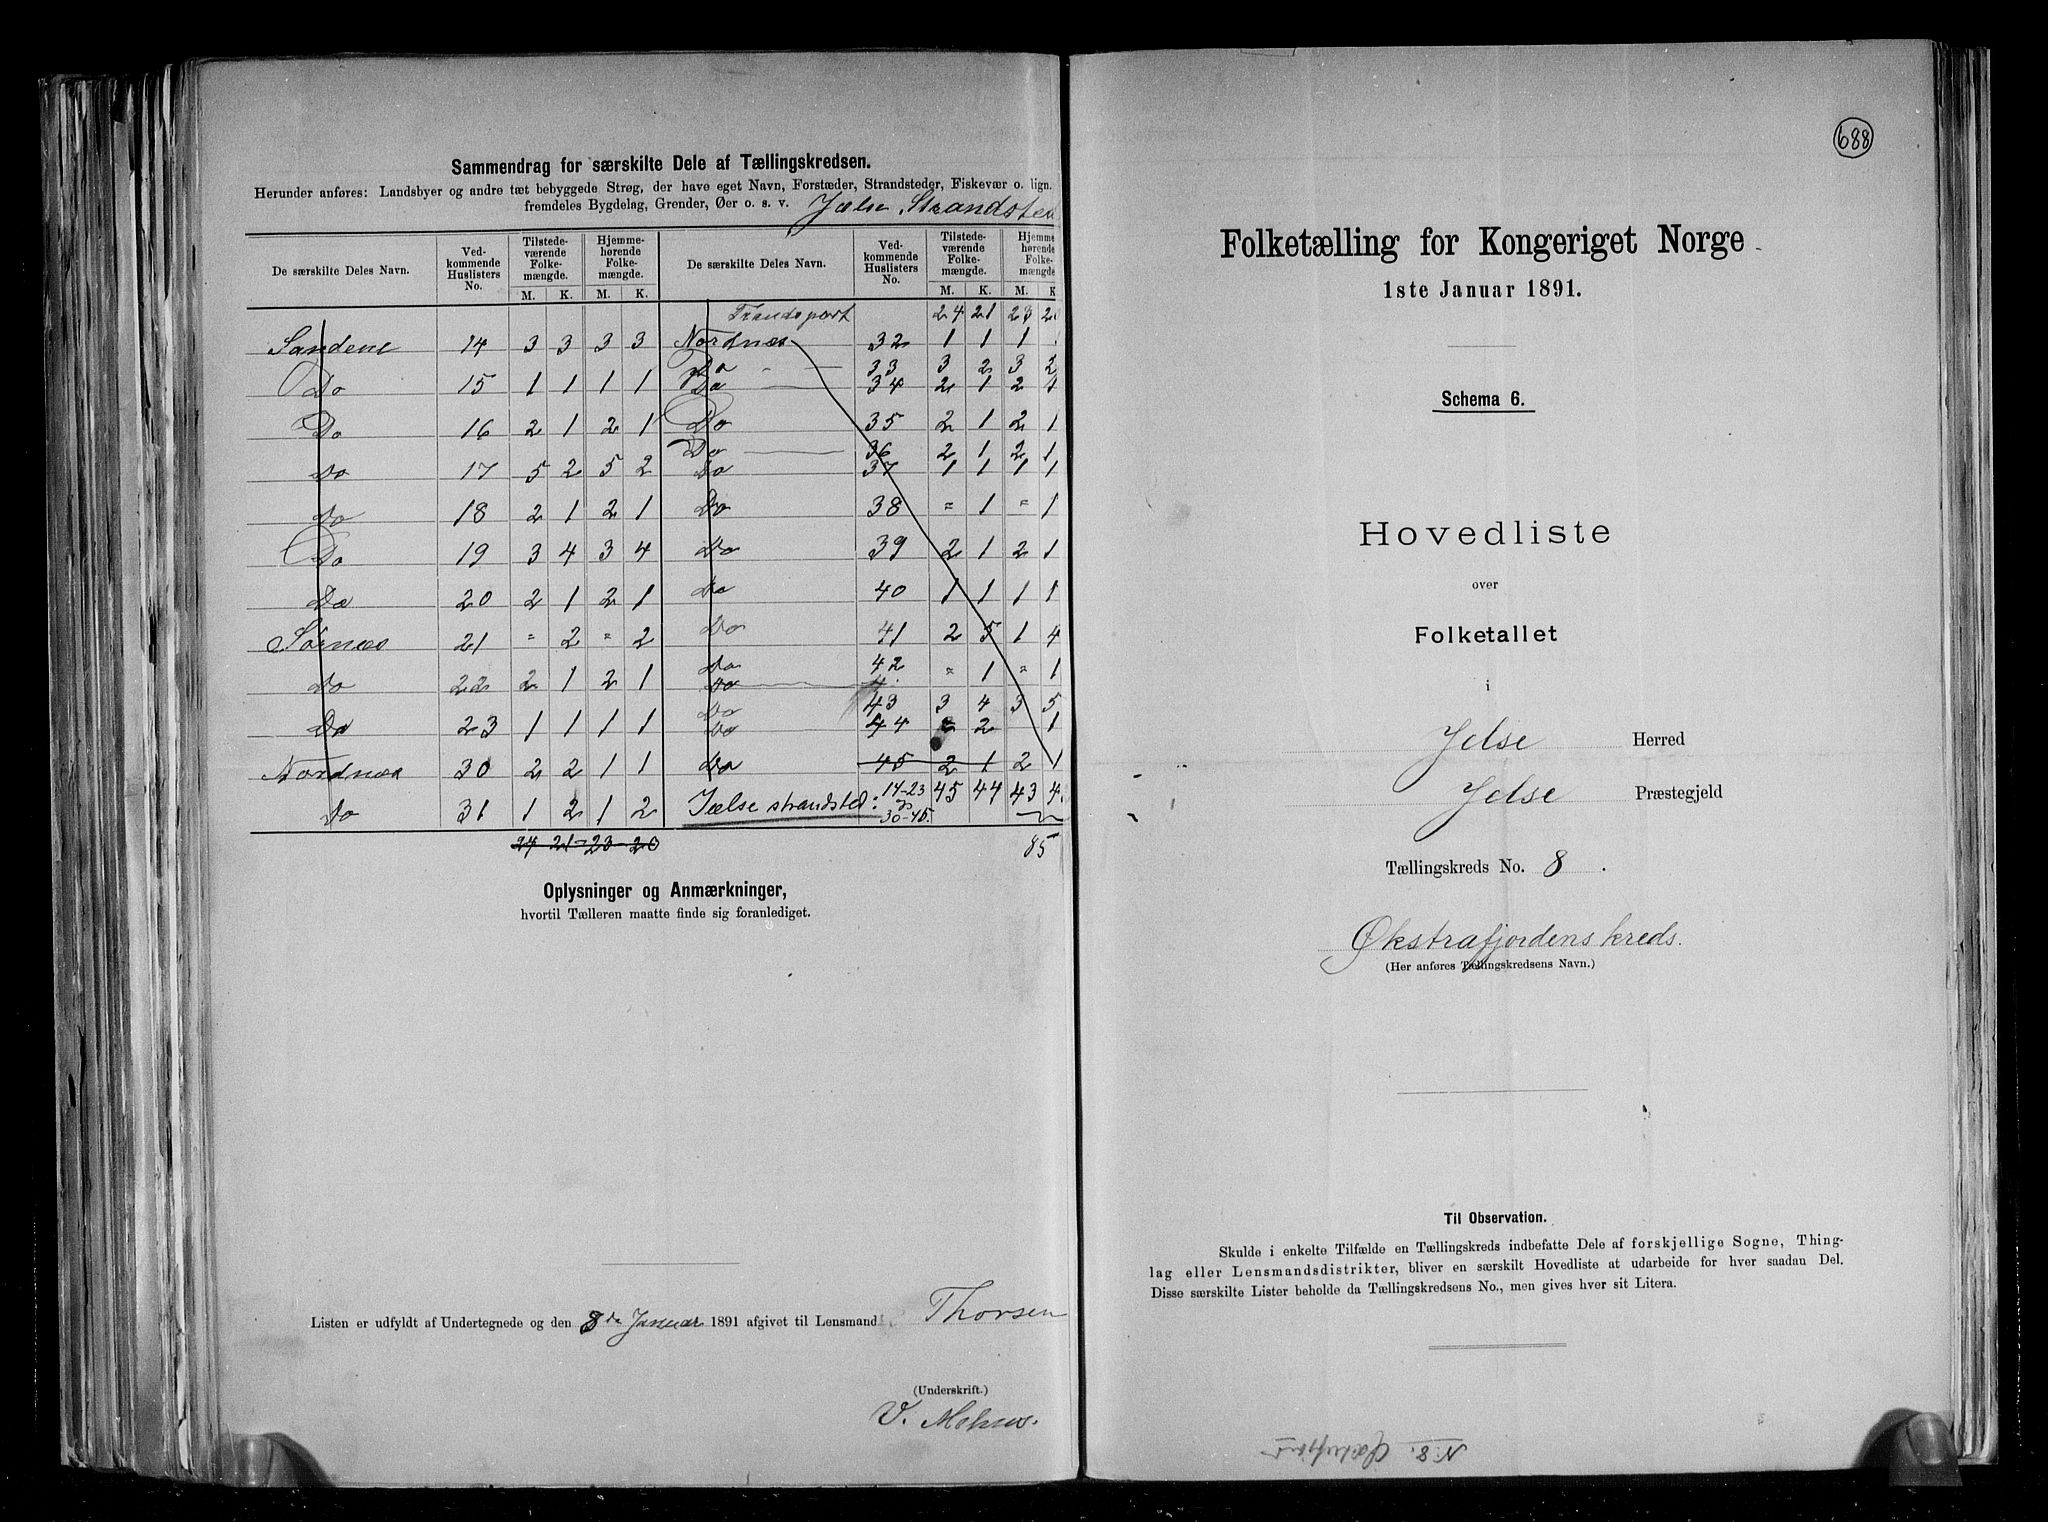 Sammendrag for særskilte Dele af Tællingskredsen.
Herunder anføres: Landsbyer og andre tæt bebyggede Strøg, der have eget Navn, Forstæder, Strandsteder, Fiskevær o. lign.
fremdeles Bygdelag, Grender, Øer o. s. v. Jælse Strandsted
De særskilte Deles Navn. Ved-kommende Huslisters No. Tilstede-værende Folke-mængde. Hjemme-hørende Folke-mængde. De særskilte Deles Navn. Ved-kommende Huslisters No. Tilstede-værende Folke-mængde. Hjemme-hørende Folke-mængde.
M. K. M. K. M. K. M. K
Transport 24 21 23 20
Sandene 14 3 3 3 3 Nordnæs 32 1 1 1
Do 33 3 2 3 2
Do 15 1 1 1 1 Do 34 2 1 2 1
Do 16 2 1 2 1 Do 35 2 1 2 1
Do 36 2 1 2 1
Do 17 5 2 5 2 Do 37 1 1 1 1
Do 18 2 1 2 1 Do 38 = 1 = 1
Do 19 3 4 3 4 Do 39 2 1 2 1
Do 20 2 1 2 1 Do 40 1 1 1 1
Sørnæs 21 = 2 = 2 Do 41 2 5 1 4
Do 42 = 1 = 1
Do 22 2 1 2 1 Do
Do 43 3 4 3 5
Do 23 1 1 1 1 Do 44 = 2 1
Nordnæs 30 2 2 1 1 Do 45 2 1 2 1
Do 31 1 2 1 2 Jælse strandsted: 14-23 og 30-45. 45 44 43 4
24 21 23 20 85
Oplysninger og Anmærkninger,
hvortil Tælleren maatte finde sig foranlediget.
Listen er udfyldt af Undertegnede og den 8de Januar 1891 afgivet til Lensmand Thorsen
(Underskrift.)
V. Mehus.
688
Folketælling for Kongeriget Norge
1ste Januar 1891.
Schema 6.
Hovedliste
over
Folketallet
i
Jelse Herred
Jelse Præstegjeld
Tællingskreds No. 8.
Økstrafjordens kreds.
(Her anføres Tællingskredsens Navn.)
Til Observation.
Skulde i enkelte Tilfælde en Tællingskreds indbefatte Dele af forskjellige Sogne, Thing-
lag eller Lensmandsdistrikter, bliver en særskilt Hovedliste at udarbeide for hver saadan Del.
Disse særskilte Lister beholde da Tællingskredsens No., men gives hver sit Litera.
N. 8.